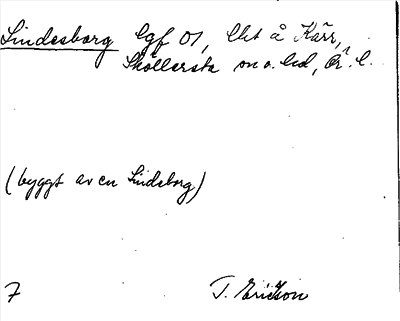 Lindesborg lgf 01, lht å Kärr,
Sköllersta sn o. hd, Ör. l.
(byggt av en Lindborg)
7 T. Ericson